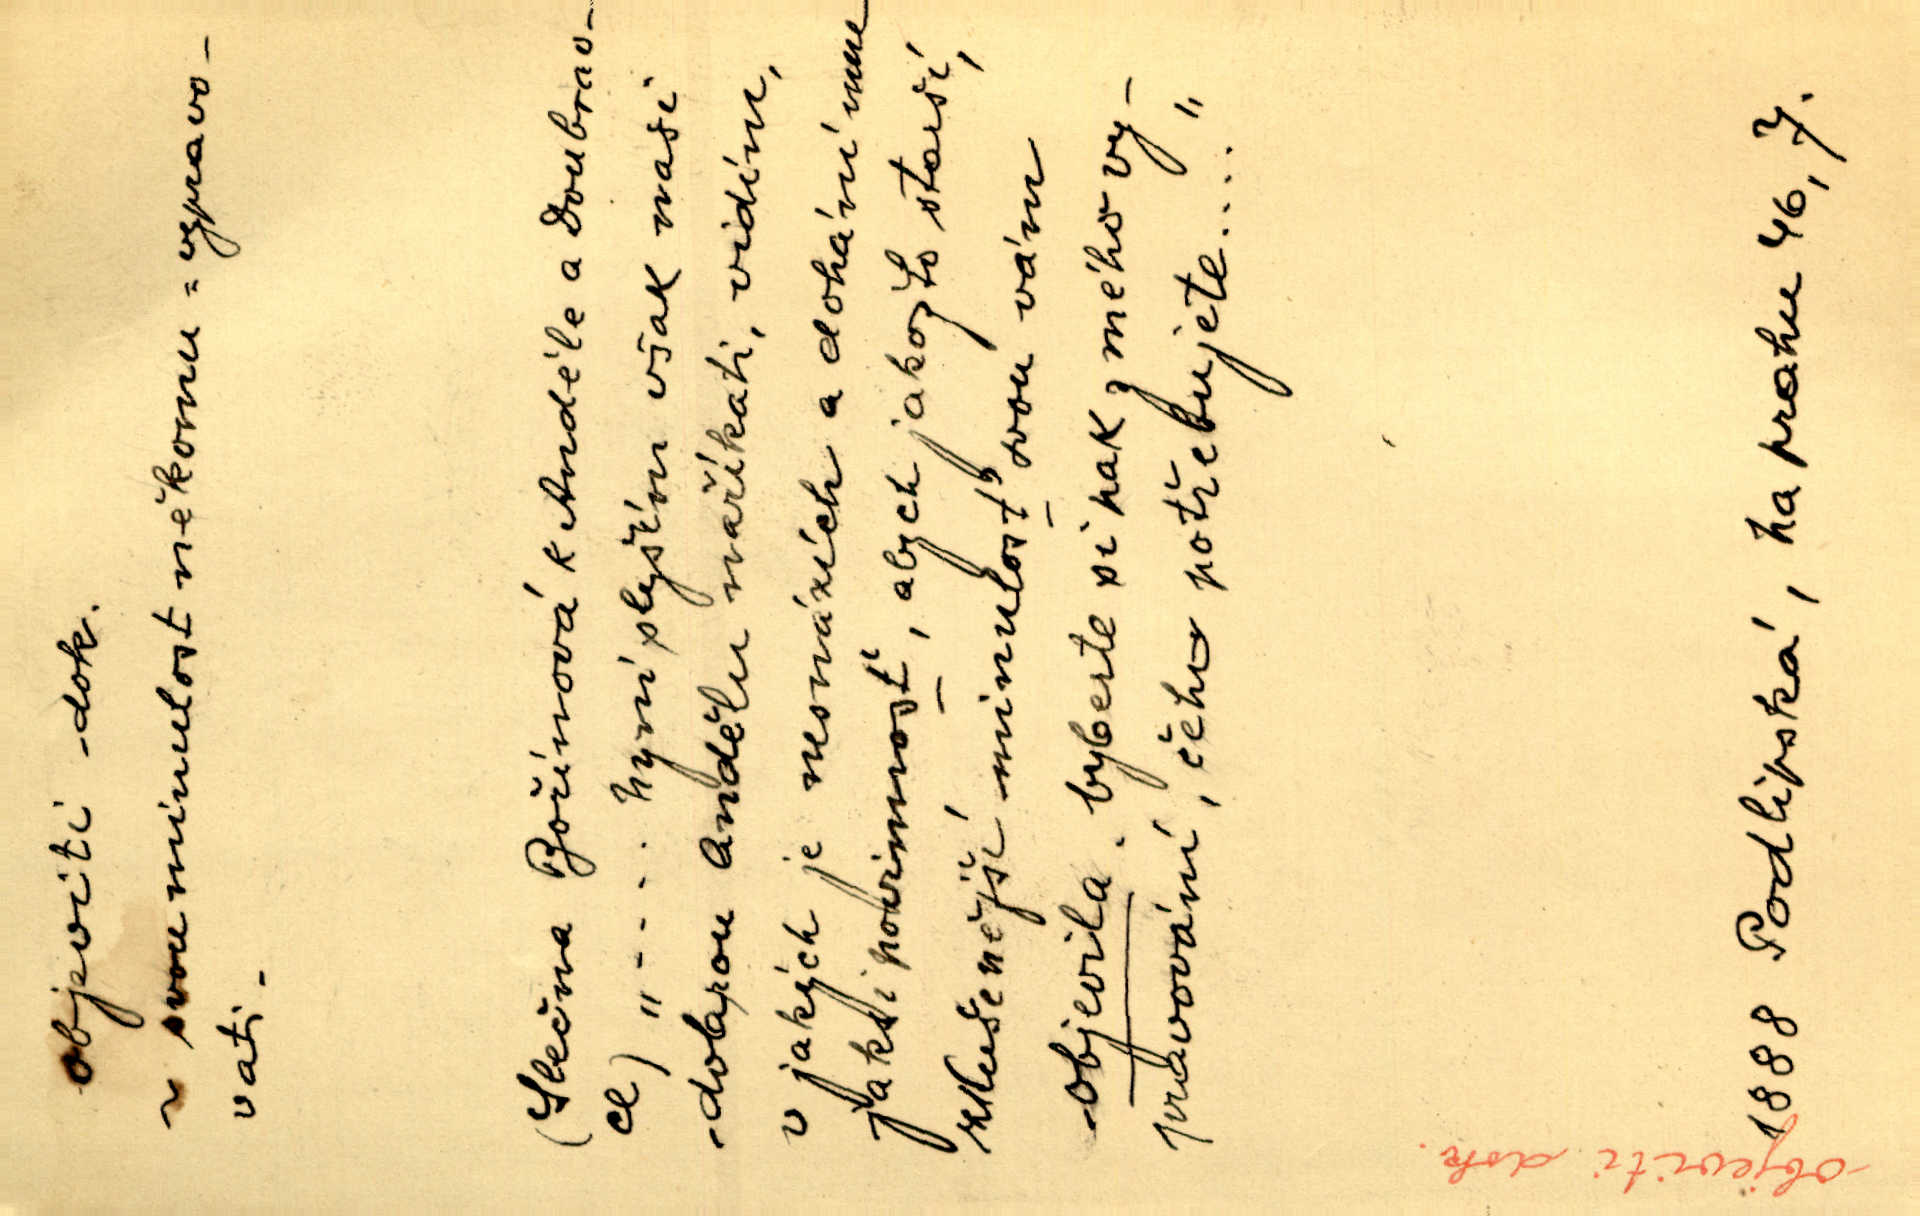 objeviti -dok.
~ svou minulost někomu = vypravo-
vati -
(Slečna Bořínová k Anděle a Doubrav-
ce) "---. Nyní slyším však naši
dobrou Andělu naříkati, vidím,
v jakých je nesnázích a doháníme
jaksi povinnosť, abych jakožto starší,
zkušenější minulosť svou vám
objevila. vyberte si pak z mého vy-
pravování, čeho potřebujete...."
1888 Podlipská, na prahu 46, 7.
objeviti dok.